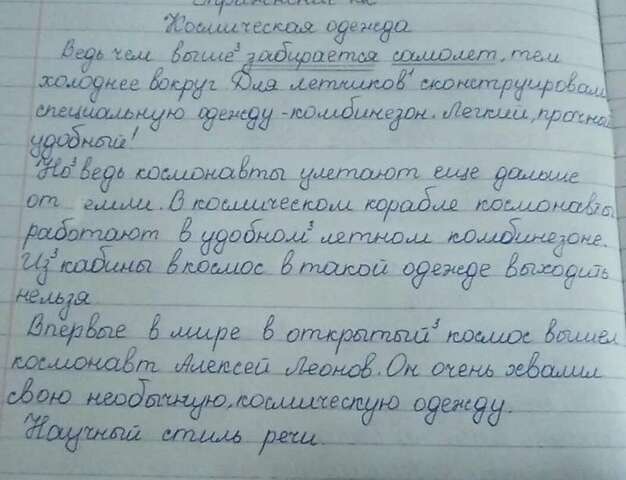 Космическая одежда
Ведь чем выше³ забирается самолет, тем
холоднее вокруг Для летчиков¹ сконструировали
специальную одежду-комбинезон. Легкий, прочный
удобный!
Но³ ведь космонавты улетают еще дальше
от емли. В космическом корабле космонавты
работают в удобном³ летном комбинезоне.
Из³ кабины в космос в такой одежде выходить
нельзя
Впервые в мире в открытый³ космос вышел
космонавт Алексей Леонов. Он очень хвалил
свою необычную, космическую одежду.
Научный стиль речи.